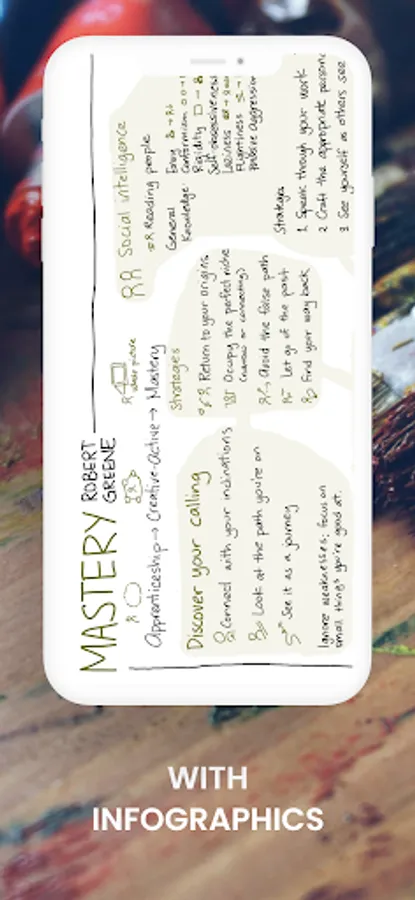 MASTERY
ROBERT
GREENE
whole picture
Apprenticeship → Creative-Active → Mastery
Discover your calling
Connect with your inclinations
Look at the path you're on
See it as a journey
Ignore weaknesses; focus on
small things you're good at.
Strategies
Return to your origins
Occupy the perfect niche
(narrow or connecting)
Avoid the false path
Let go of the past
Find your way back
Social intelligence
Reading people
General
Knowledge
Envy
Conformism
Rigidity
Self-obsessiveness
Laziness
Flightiness
Passive Aggression
Strategies
1. Speak through your work
2 Craft the appropriate persona
3 See yourself as others see
WITH
INFOGRAPHICS